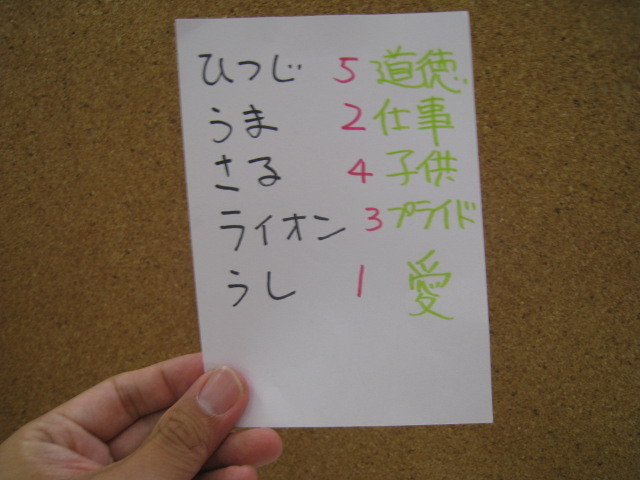 ひつじ 5 道徳
うま 2 仕事
さる 4 子供
ライオン 3 プライド
うし 1 愛